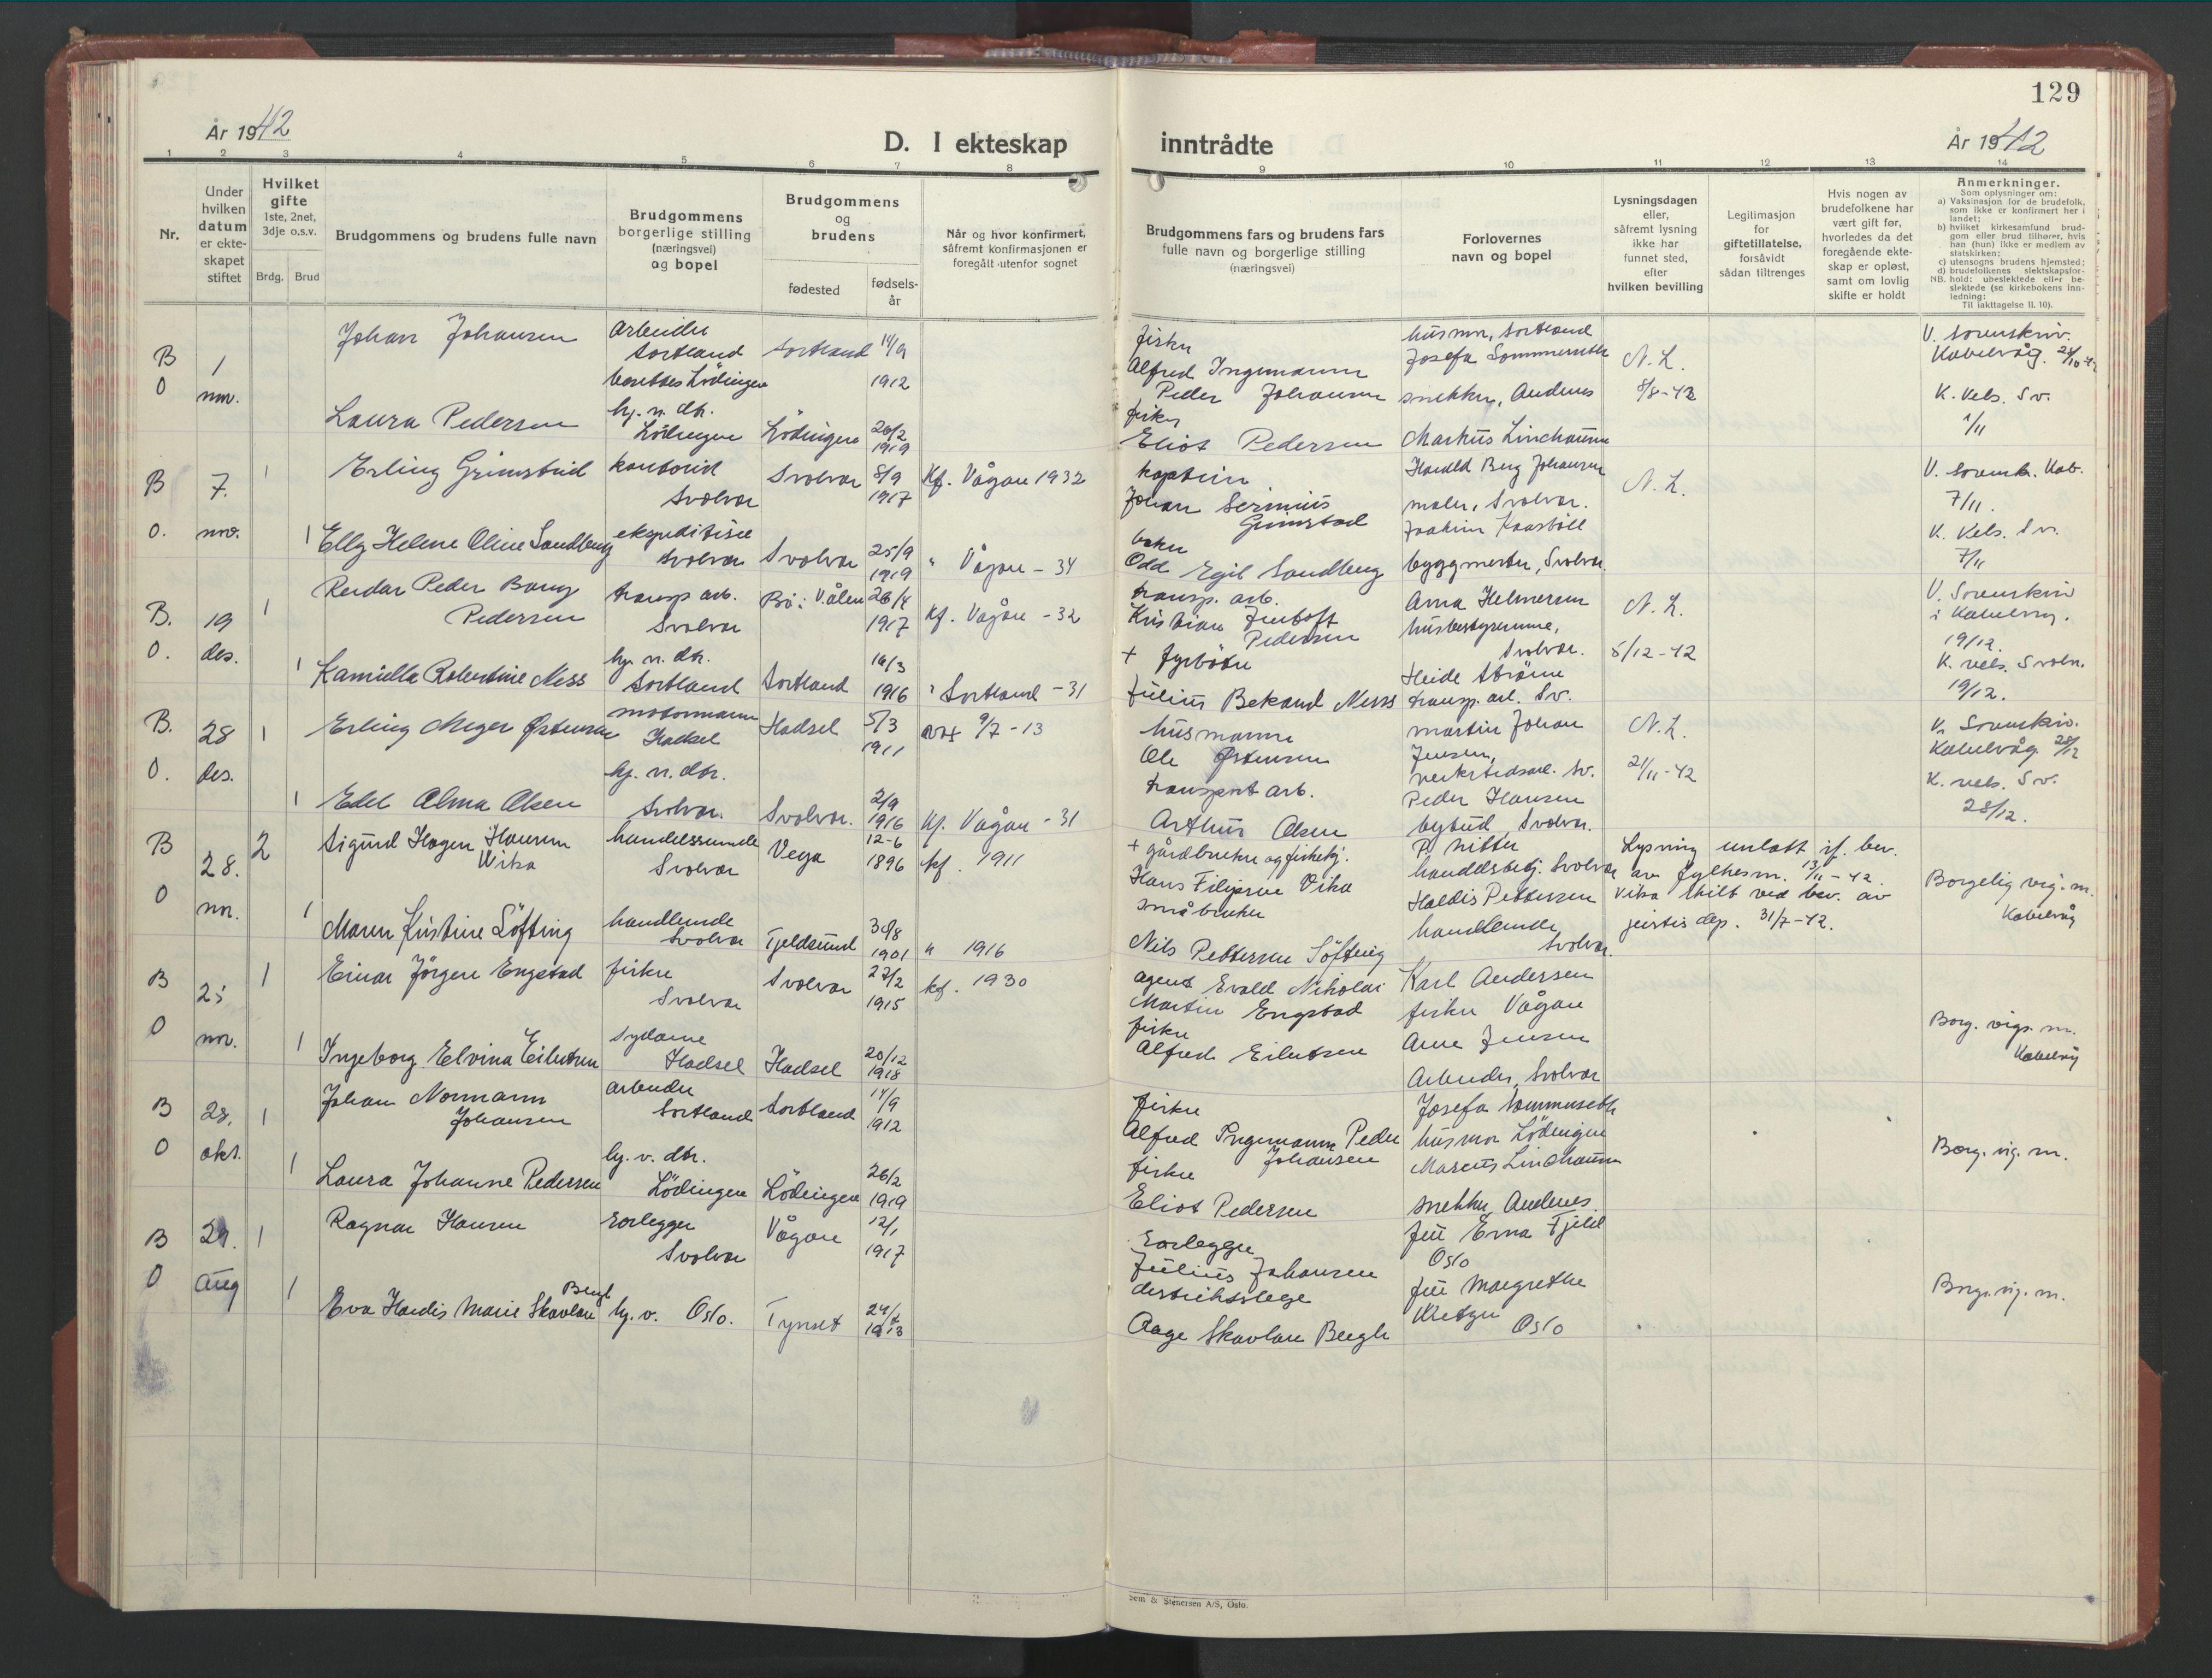 129
År 1942
D. I ekteskap inntrådte
År 1942
1 2 3 4 5 6 7 8 9 10 11 12 13 14
Nr.
Under hvilken datum er ekteskapet stiftet
Hvilket gifte 1ste, 2net, 3dje o.s.v.
Brdg. Brud
Brudgommens og brudens fulle navn
Brudgommens borgerlige stilling (næringsvei) og bopel
Brudgommens og brudens
fødested
fødsels-år
Når og hvor konfirmert, såfremt konfirmasjonen er foregått utenfor sognet
Brudgommens fars og brudens fars fulle navn og borgerlige stilling (næringsvei)
Forlovernes navn og bopel
Lysningsdagen eller, såfremt lysning ikke har funnet sted, efter hvilken bevilling
Legitimasjon for giftetillatelse, forsåvidt sådan tiltrenges
Hvis nogen av brudefolkene har vært gift før, hvorledes da det foregående ekteskap er opløst, samt om lovlig skifte er holdt
Anmerkninger.
Som oplysninger om:
a) Vaksinasjon for de brudefolk, som ikke er konfirmert her i landet;
b) hvilket kirkesamfund brudgom eller brud tilhører, hvis han (hun) ikke er medlem av statskirken;
c) utensogns brudens hjemsted;
d) brudefolkenes slektskapsforhold: ubeslektede eller beslektede (se kirkebokens innledning:
NB.
Til iakttagelse II. 10).
B 1 Johan Johansen arbeider Sortland bosettes Lödingen Sortland 14/9 1912 fisker Alfred Ingemann Peder Johansen husmor, Sortland Josefa Sommerseth N. L. 8/8-42 V. Sorenskriv. Kabelvåg.
O nov. Laura Pedersen hj. v. dtr. Lödingen Lödingen 26/2 1919 fisker Eliot Pedersen snekker, Andenes Markus Lindhaum K. Kels. Sv. 1/11
B 7. 1 Erling Grimstad kontorist Svolvær Svolvær 8/9 1917 Kf. Vågan 1932 kaptein Johan Grimstad Harald Berg Johansen maler, Svolvær. N. L. V. Sorensk. Kab. 7/11.
O. nov. 1 Elly Helene Oline Sandberg Svolvær Svolvær 25/9 1919 " Vågan - 34 Odd Egil Sandberg Joakim Kaarbøll byggmester, Svolvær. K. Kels. Sv. 7/11
B. 19 1 Reidar Peder Bang Pedersen transp. arb. Svolvær Bö i V.ålen 26/4 1917 Kf. Vågan - 32 transp. arb. Kristian Pedersen Arna Helmersen husbestyrerinne, Svolvær. N. L. 5/12-42 V. Sorenskriv i Kabelvåg. 19/12.
O. des. 1 Kamilla Robertine Ness hj. v. dtr. Sortland Sortland 16/3 1916 " Sortland - 31 + fyrbøter Julius Bekand Ness Heide Strøm transp. arb. Sv. K. vels. Svolv. 19/12.
B. 28 1 Erling Meyer Østensen motormann Hadsel Hadsel 5/3 1911 9/7 - 13 husmann Ole Østensen Martin Johan Jensen, verkstedsarb. Sv. N. L. 21/11-42 V. Sorenskriv. Kabelvåg 28/12
O. des. 1 Edel Alma Olsen hj. v. dtr. Svolvær. Svolvær. 2/9 1916 Kf. Vågan - 31 transport arb. Arthur Olsen Peder Hansen bybud, Svolvær. K. vels. Sv. 28/12.
B 28. 2 Sigurd Hagen Hansen Wika handelsreisende Svolvær Vega 12-6 1896 kf. 1911 + gårdbruker og fiskehj. Hans Filipsen Vika P. Nitter handelsbetj. Svolvær Lysning unlatt if. bev. av fylkesm. 13/11-42. Borgelig vig. m. Kabelvåg
O nov. 1 Maren Kristine Söfting handlende Svolvær Tjeldsund 30/8 1901 " 1916 småbruker Nils Pettersen Söfting Haldis Pettersen handlende Svolvær. Vika skilt ved bev. av justis dep. 31/7-42.
B 25 1 Einar Jörgen Engstad fisker Svolvær Svolvær 27/2 1915 kf. 1930 agent Evald Nikolai Martin Engstad Karl Andersen fisker Vågan Borg. vigs. m. Kabelvåg
O nov. 1 Ingeborg Elvina Eilertsen sydame Hadsel Hadsel 20/12 1918 fisker Alfred Eilertsen Arne Jensen Arbeider, Svolvær
B 28, 1 Johan Normann Johansen arbeider Sortland Sortland 14/9 1912 fisker Alfred Ingemann Peder Johansen Josefa Sommerseth husmor Lödingen Borg. vig. m.
O okt. 1 Laura Johanne Pedersen hj. v. dtr. Lödingen Lödingen 26/2 1919 fisker Eliot Pedersen Marcus Lindhaum snekker, Andenes.
B 29. 1 Ragnar Hansen rørlegger Svolvær Vågan 12/1 1917 rørlegger Julius Johansen frü Erna Fjeld Oslo Borg. vig. m.
O aug 1 Eva Hardis Marie Skavlan Bergh hj. v. Oslo. Tynset 1913 distriktslege Aage Skavlan Bergh frü Margrethe Oslo
Sem & Stenersen A/S, Oslo.